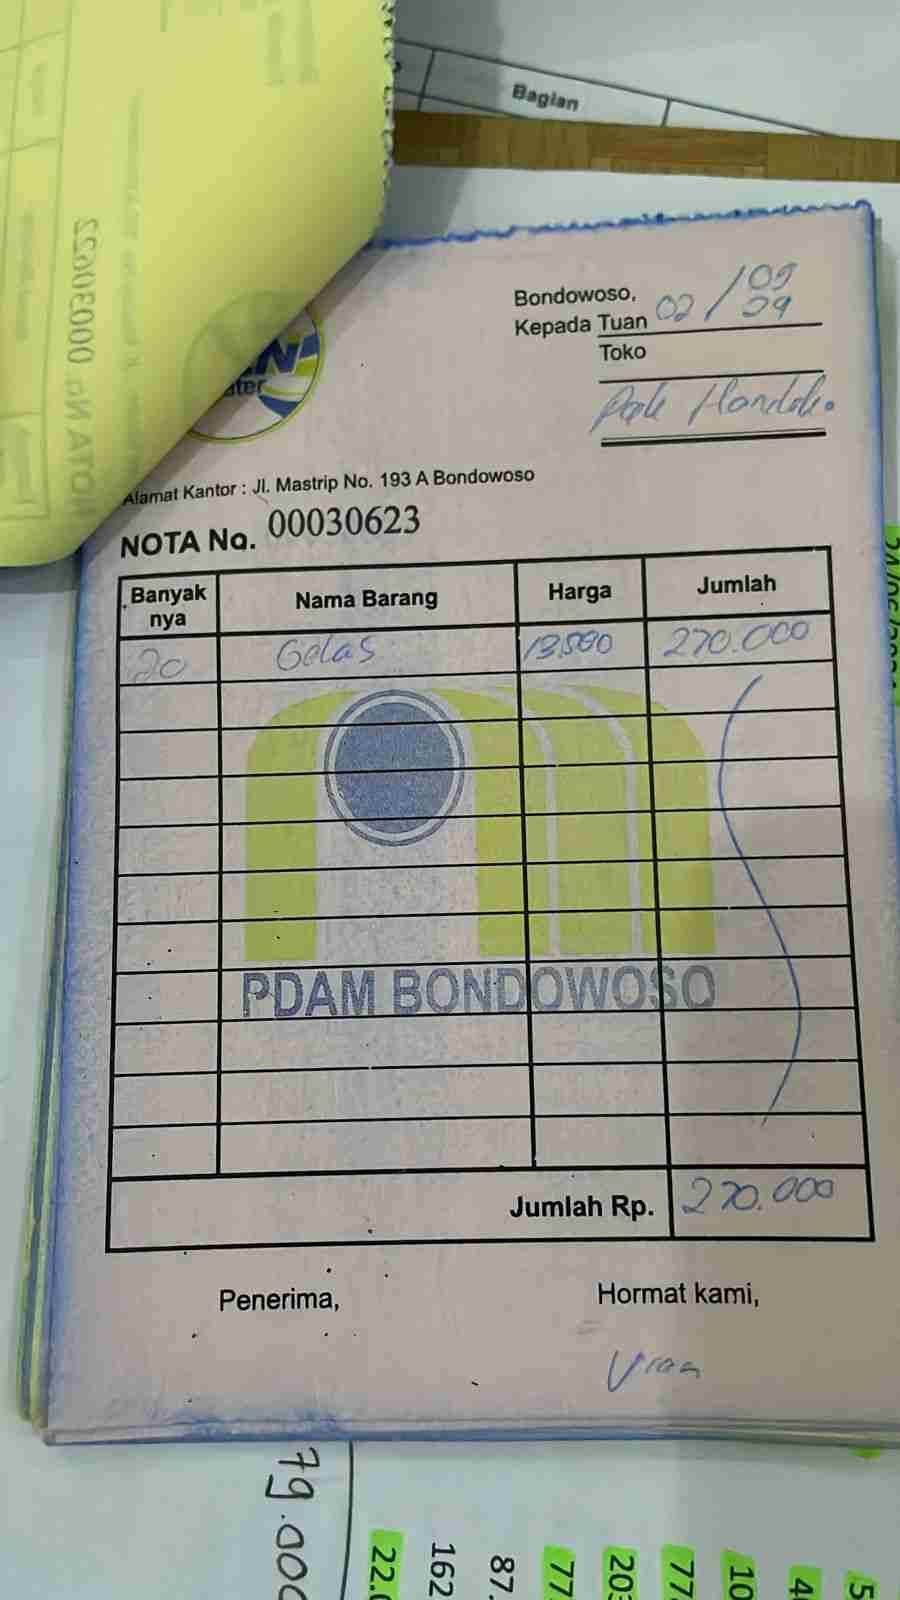 Bagian
00030622
Bondowoso, 02 / 09
Kepada Tuan
Toko
Pak Handoko
ter
Alamat Kantor : Jl. Mastrip No. 193 A Bondowoso
NOTA No. 00030623
Banyak nya Nama Barang Harga Jumlah
20 Gelas 13.500 270.000
PDAM BONDOWOSO
Jumlah Rp. 270.000
Penerima, Hormat kami,
79.000
22.0
162
87.
77
203
77
10
4
5